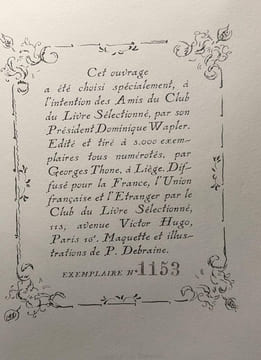 Cet ouvrage
a été choisi spécialement, à
l'intention des Amis du Club
du Livre Sélectionné, par son
Président Dominique Wapler.
Edité et tiré à 3.000 exem-
plaires tous numérotés, par
Georges Thone, à Liège. Dif-
fusé pour la France, l'Union
française et l'Etranger par le
Club du Livre Sélectionné,
113, avenue Victor Hugo,
Paris 16e. Maquette et illus-
trations de P. Debraine.
EXEMPLAIRE N° 1153